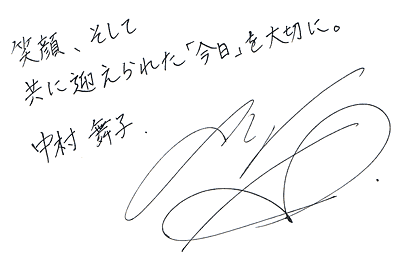 笑顔、そして
共に迎えられた「今日」を大切に。
中村 舞子.